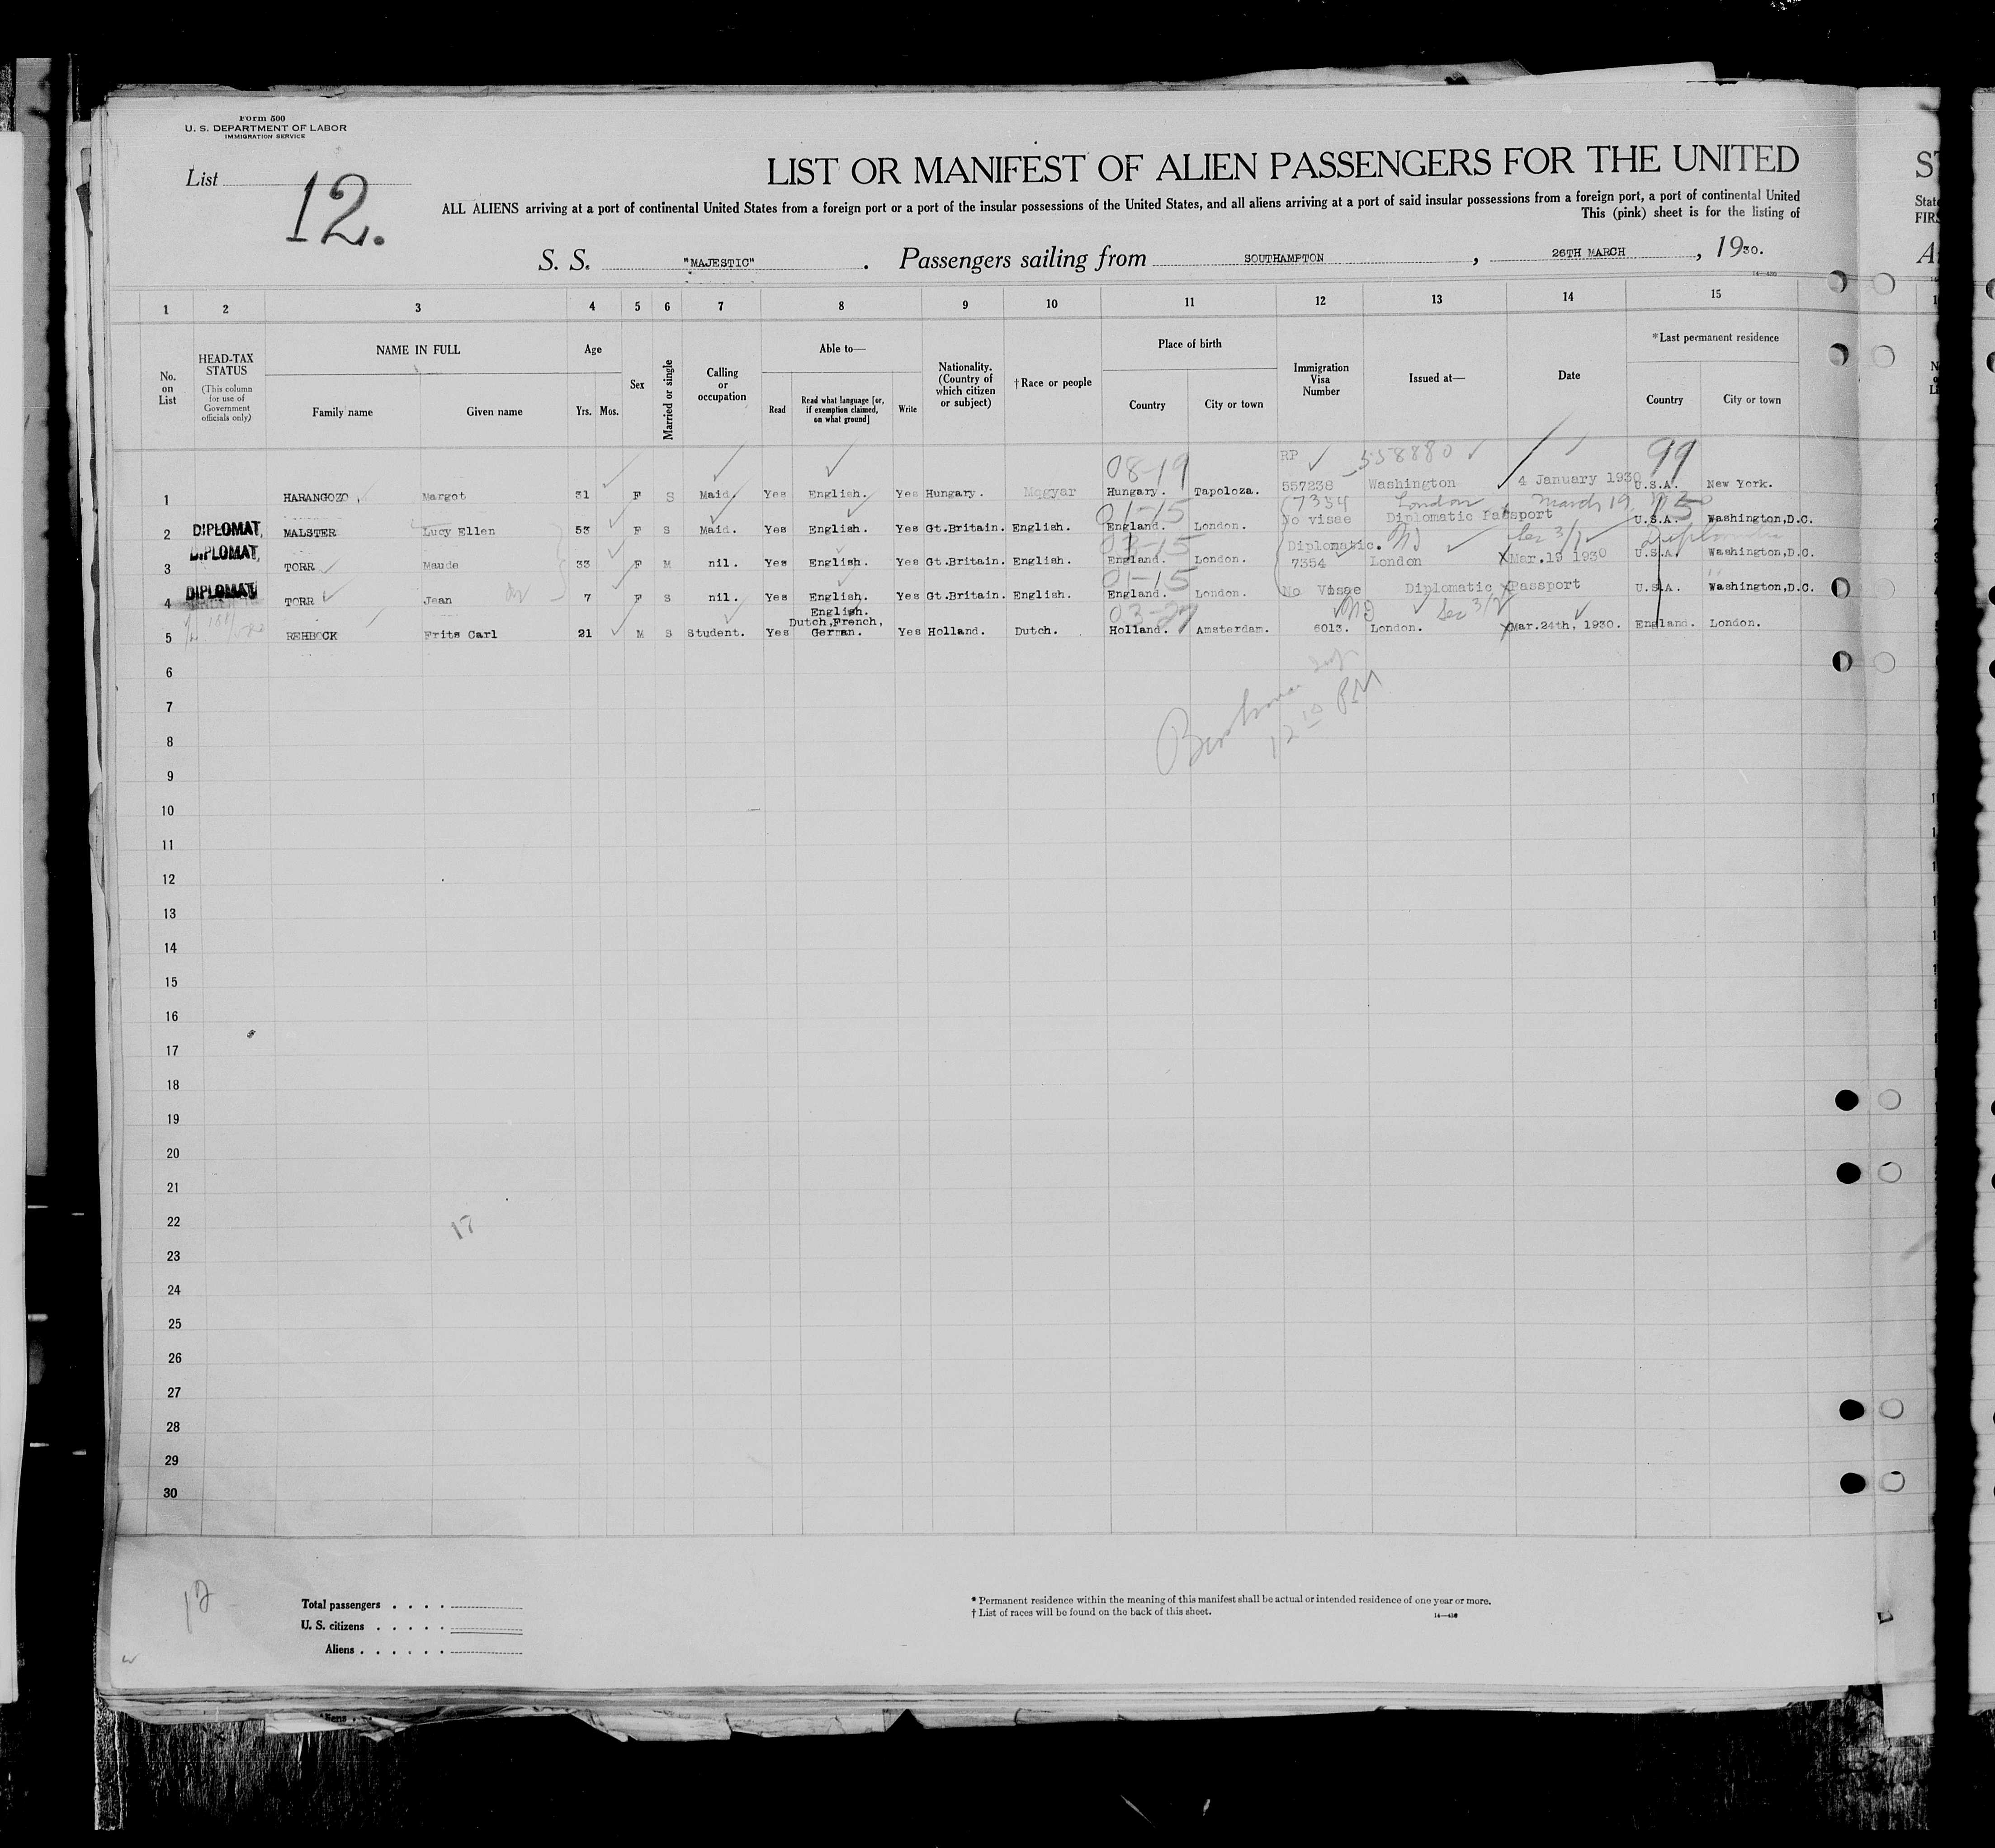 Form 500
U. S. DEPARTMENT OF LABOR
IMMIGRATION SERVICE
List 12.
LIST OR MANIFEST OF ALIEN PASSENGERS FOR THE UNITED
ALL ALIENS arriving at a port of continental United States from a foreign port or a port of the insular possessions of the United States, and all aliens arriving at a port of said insular possessions from a foreign port, a port of continental United
This (pink) sheet is for the listing of
S. S. "MAJESTIC". Passengers sailing from SOUTHAMPTON, 26TH MARCH, 1930.
14—430
1 2 3 4 5 6 7 8 9 10 11 12 13 14 15
No. on List
HEAD-TAX STATUS
(This column for use of Government officials only)
NAME IN FULL
Family name Given name
Age
Yrs. Mos.
Sex
Married or single
Calling or occupation
Able to—
Read
Read what language [or, if exemption claimed, on what ground]
Write
Nationality. (Country of which citizen or subject)
†Race or people
Place of birth
Country City or town
Immigration Visa Number
Issued at—
Date
*Last permanent residence
Country City or town
08-19 RP 558880 99
1 HARANGOZO, Margot 31 F S Maid. Yes English. Yes Hungary. Magyar Hungary. Tapoloza. 557238 Washington 4 January 1930 U.S.A. New York.
01-15 7354 London March 19,
2 DIPLOMAT. MALSTER Lucy Ellen 53 F S Maid. Yes English. Yes Gt.Britain. English. England. London. No visae Diplomatic Passport U.S.A. Washington,D.C.
Diplomatic. Sec 3/1
3 DIPLOMAT. TORR Maude 33 F M nil. Yes English. Yes Gt.Britain. English. England. London. 7354 London Mar.19 1930 U.S.A. Washington,D.C.
01-15
4 DIPLOMAT TORR Jean 7 F S nil. Yes English. Yes Gt.Britain. English. England. London. No Visae Diplomatic Passport U.S.A. Washington,D.C.
English. Sec 3/2
Dutch,French,
5 REHBOCK Frits Carl 21 M S Student. Yes German. Yes Holland. Dutch. Holland. Amsterdam. 6013. London. Mar.24th, 1930. England. London.
6
7
12 10 PM
8
9
10
11
12
13
14
15
16
17
18
19
20
21
22
17
23
24
25
26
27
28
29
30
12
Total passengers
U. S. citizens
Aliens
* Permanent residence within the meaning of this manifest shall be actual or intended residence of one year or more.
† List of races will be found on the back of this sheet.